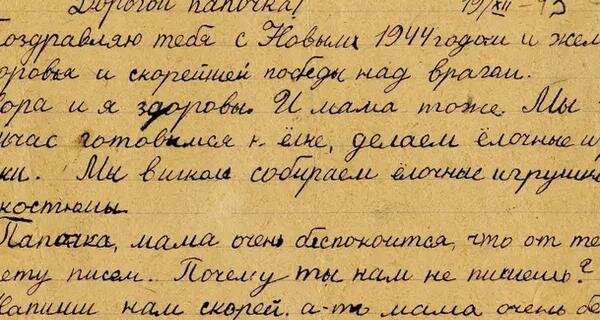 Дорогой папочка! 19/XII-43
оздравляю тебя с Новым 1944 годом и жел
оровья и скорейшей победы над врагом.
ора и я здоровы. И мама тоже. Мы
йчас готовимся к ёлке, делаем ёлочные иг
ки. Мы в школе собираем ёлочные игрушки
костюмы.
Папочка, мама очень беспокоится, что от те
ету писем. Почему ты нам не пишешь?
Напиши нам скорей, а-то мама очень бе